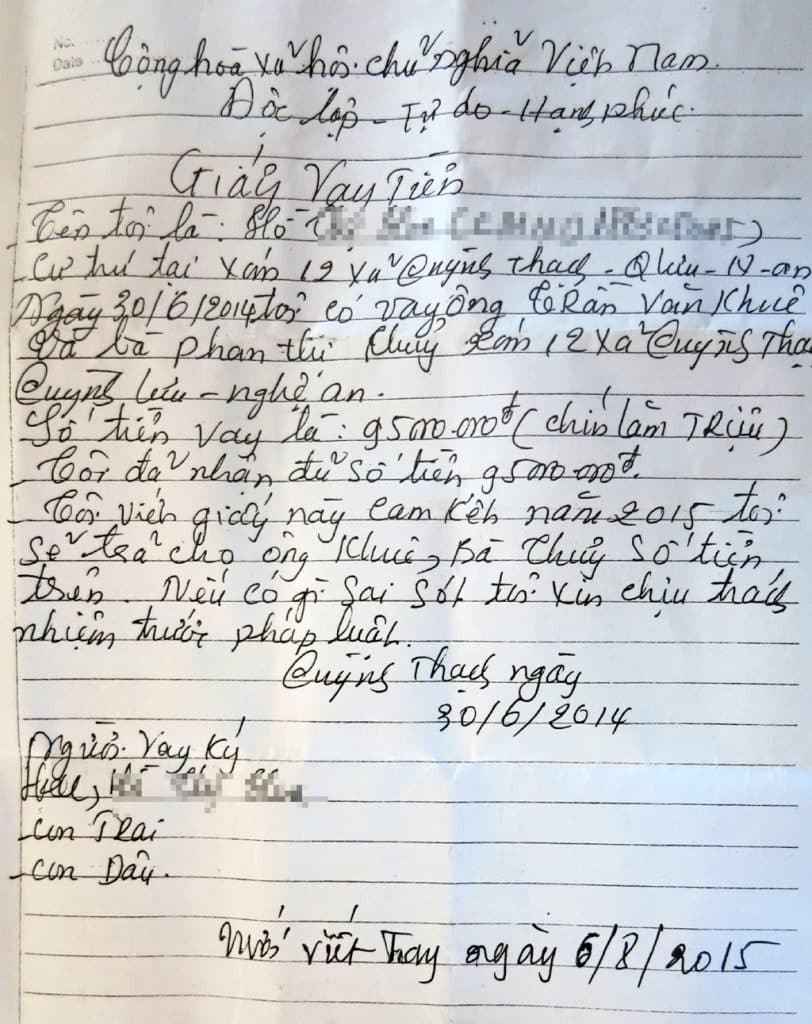 No.
Date
Cộng hoà xã hôi chủ nghĩa Việt Nam.
Độc lập - Tự do - Hạnh phúc.
Giấy Vay Tiền
- Tên tôi là: Hồ
- Cư thú tại xóm 12 xã Quỳnh thạch - Q lưu - N-an
Ngày 30/6/2014 tôi có vay ông Trần Văn Khuê
Và bà phan thị thuỷ xóm 12 xã Quỳnh Thạ
Quỳnh lưu - nghệ an.
Số tiền vay là: 95000.000đ (chín lăm TRiệu)
- Tôi đã nhận đủ số tiền 95000.000đ.
- Tôi viết giấy này cam kết năm 2015 tôi
sẽ trả cho ông Khuê, Bà Thuỷ số tiền
trên. Nếu có gì sai sót tôi xin chịu trách
nhiệm trước pháp luật.
Quỳnh Thạch ngày
30/6/2014
Người vay ký
- con TRai
- con Dâu.
viết thay ngày 6/8/2015